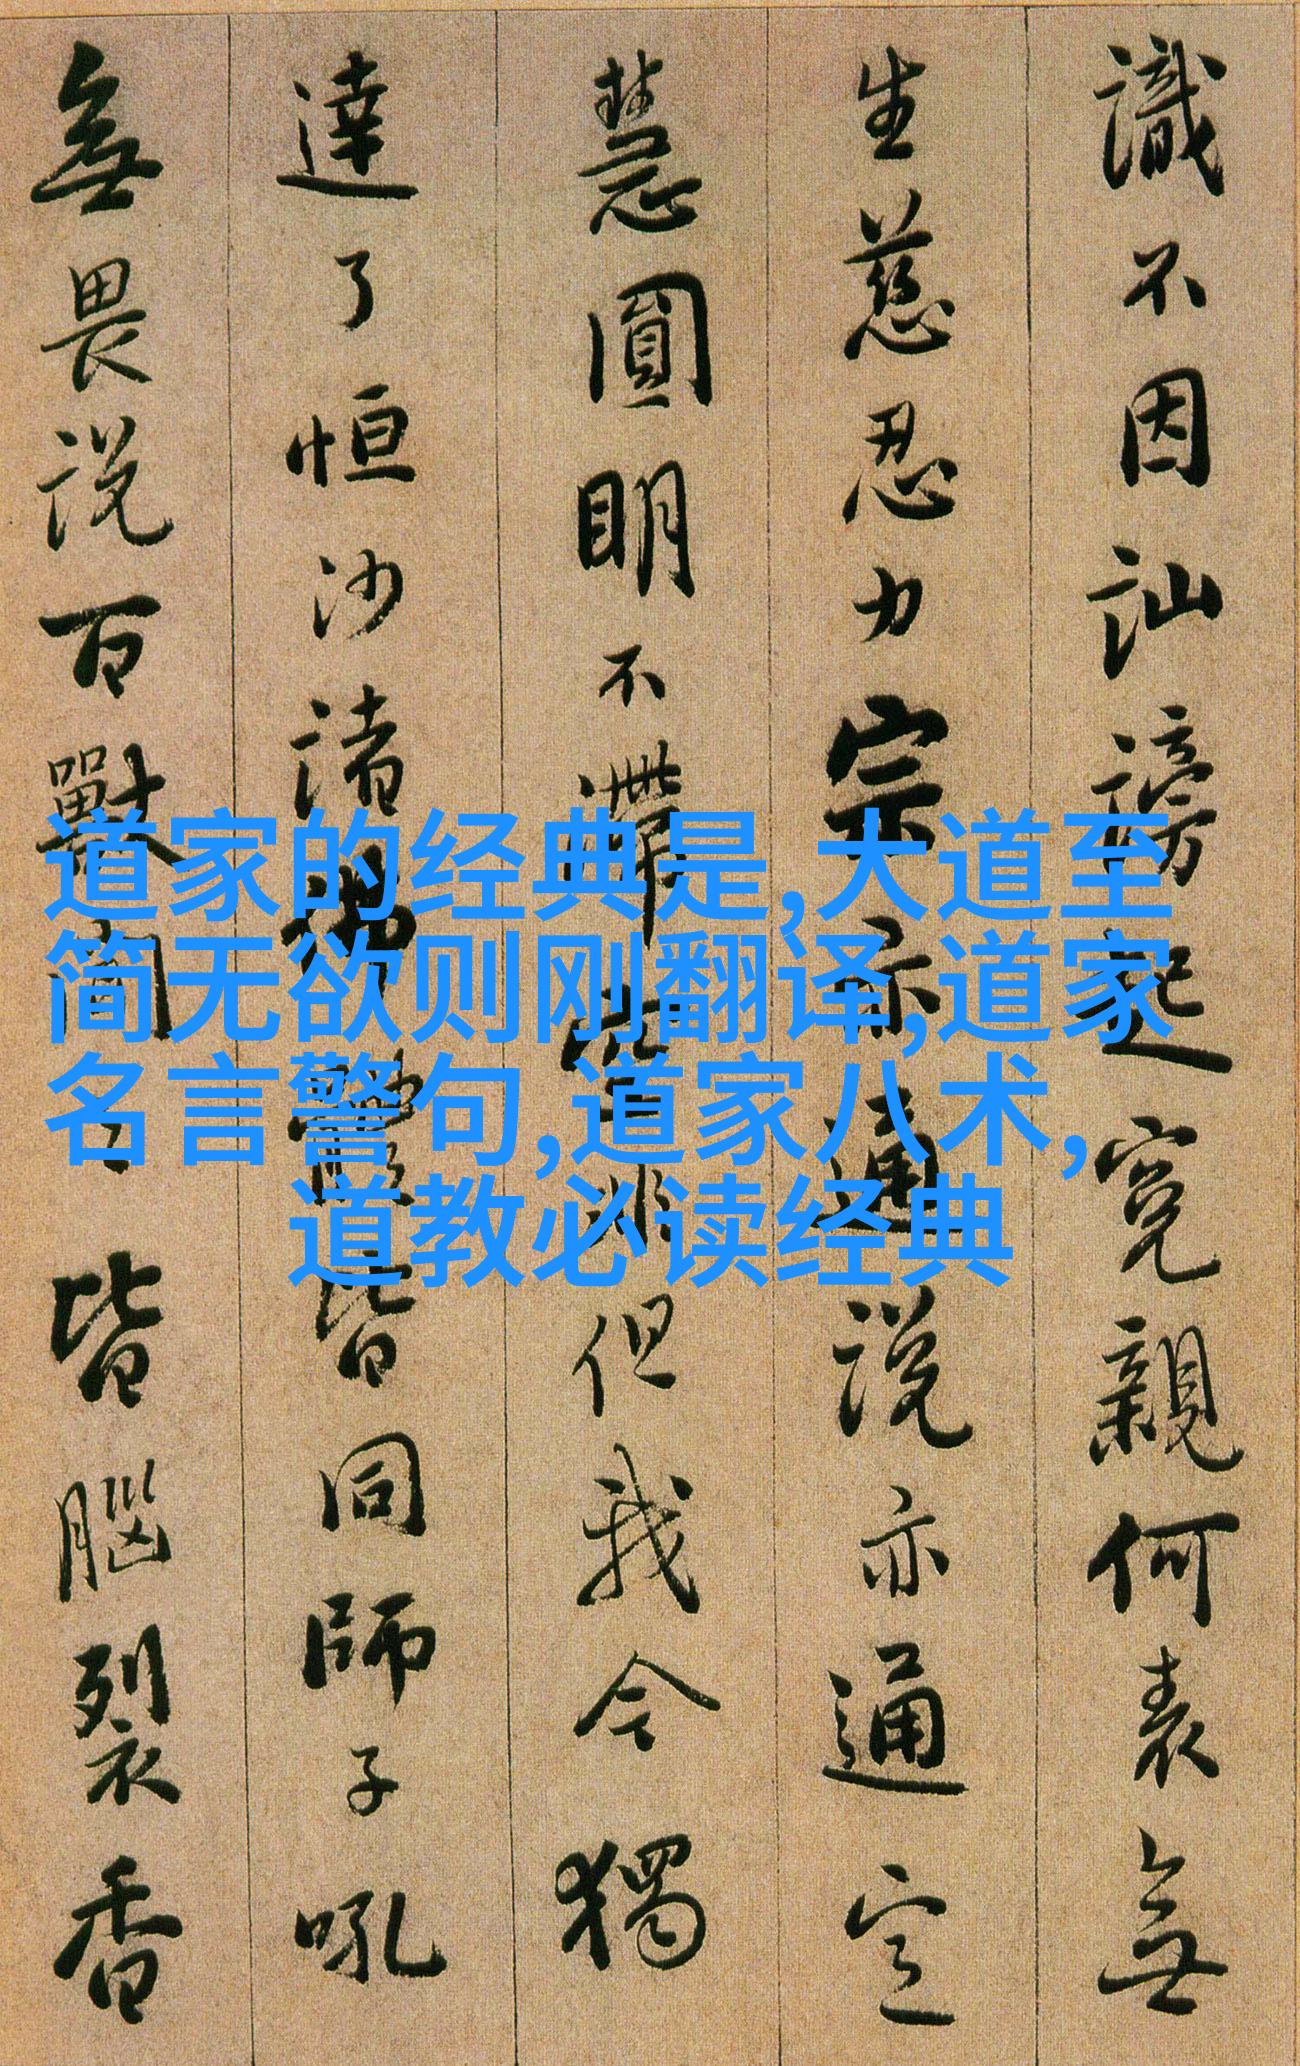 識不因訕謗起寃親何表無
生慈忍力宗亦通説亦通定
慧圓明不滯空非但我今獨
達了恒沙諸佛體皆同師子吼
無畏説百獸聞之皆腦裂香
道家的经典是,大道至
简无欲则刚翻译,道家
名言警句,道家八术,
道教必读经典